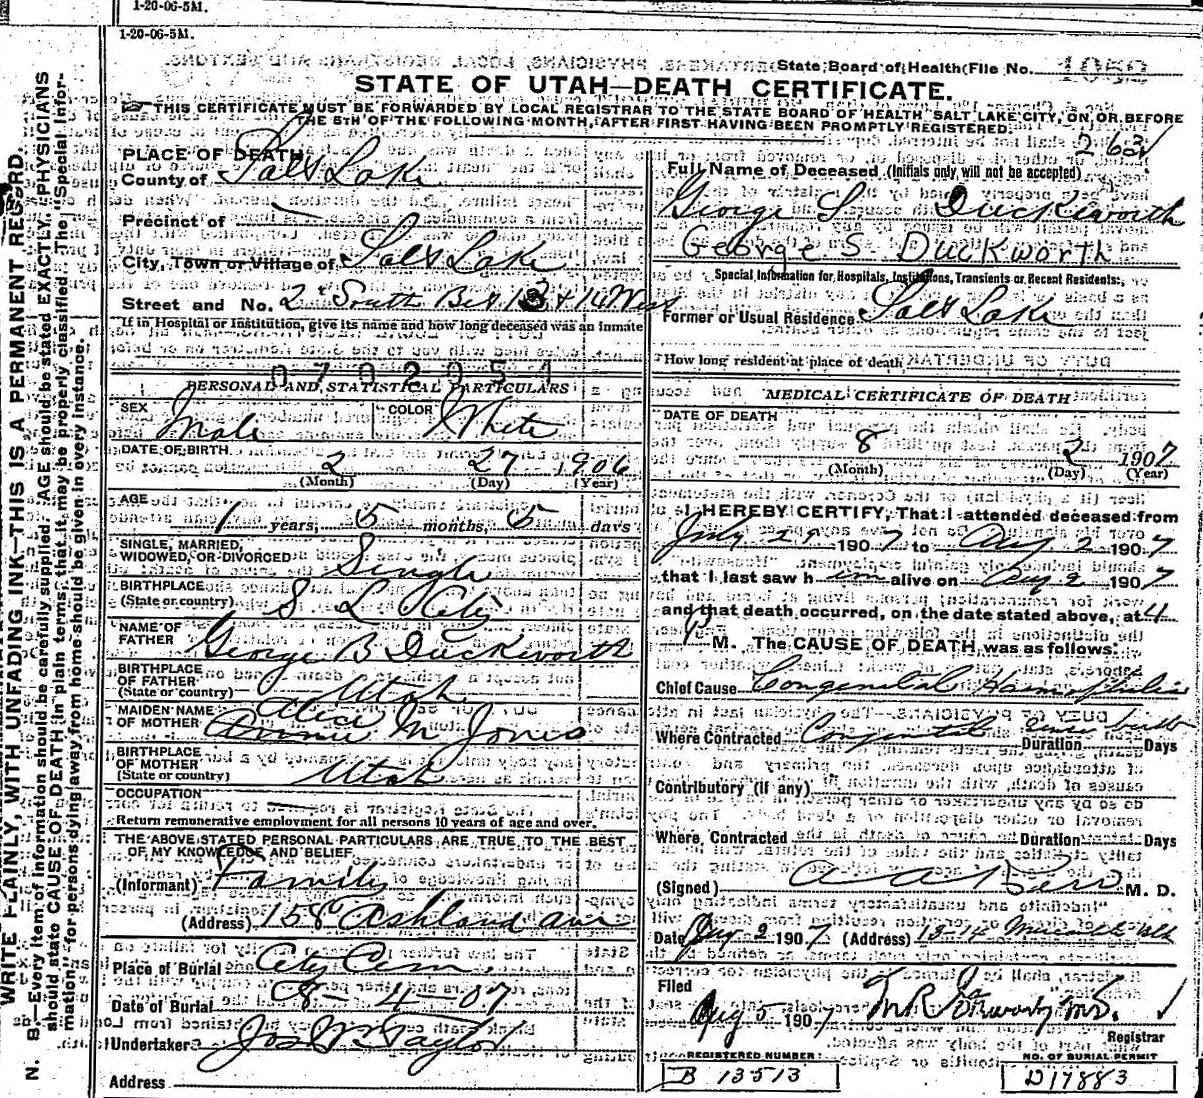 1-20-06-5M.
1-20-06-5M.
State Board of Health File No. 1059
STATE OF UTAH—DEATH CERTIFICATE.
THIS CERTIFICATE MUST BE FORWARDED BY LOCAL REGISTRAR TO THE STATE BOARD OF HEALTH SALT LAKE CITY, ON OR BEFORE
THE 5TH OF THE FOLLOWING MONTH, AFTER FIRST HAVING BEEN PROMPTLY REGISTERED.
WRITE PLAINLY, WITH UNFADING INK—THIS IS A PERMANENT RECORD.
N. B.—Every item of information should be carefully supplied. AGE should be stated EXACTLY. PHYSICIANS
should state CAUSE OF DEATH in plain terms, that it may be properly classified. The "Special Infor-
mation" for persons dying away from home should be given in every instance.
PLACE OF DEATH
County of Salt Lake
Precinct of
City, Town or Village of Salt Lake
Street and No. 2d South Bet 13 & 14 West
If in Hospital or Institution, give its name and how long deceased was an inmate
0702051
PERSONAL AND STATISTICAL PARTICULARS
SEX Male COLOR White
DATE OF BIRTH 2 27 1906
(Month) (Day) (Year)
AGE 1 years, 5 months, 5 days
SINGLE, MARRIED,
WIDOWED, OR DIVORCED Single
BIRTHPLACE
(State or country) S L City
NAME OF
FATHER George B Duckworth
BIRTHPLACE
OF FATHER
(State or country) Utah
MAIDEN NAME Alice
OF MOTHER Annie M Jones
BIRTHPLACE
OF MOTHER
(State or country) Utah
OCCUPATION
Return remunerative employment for all persons 10 years of age and over.
THE ABOVE STATED PERSONAL PARTICULARS ARE TRUE TO THE BEST
OF MY KNOWLEDGE AND BELIEF
(Informant) Family
(Address) 158 Ashland ave
Place of Burial City Cem
Date of Burial 8-4-07
Undertaker Jos Wm Taylor
Address
263
Full Name of Deceased (Initials only will not be accepted)
George S Duckworth
George S. Duckworth
Special Information for Hospitals, Institutions, Transients or Recent Residents:
Former or Usual Residence Salt Lake
How long resident at place of death
MEDICAL CERTIFICATE OF DEATH
DATE OF DEATH
8 2 1907
(Month) (Day) (Year)
I HEREBY CERTIFY, That I attended deceased from
July 29 1907 to Aug 2 1907
that I last saw him alive on Aug 2 1907
and that death occurred, on the date stated above, at 4
P M. The CAUSE OF DEATH was as follows:
Chief Cause Congenital Haemophilia
Where Contracted Congenital Since birth Duration Days
Contributory (if any)
Where Contracted Duration Days
(Signed) A A Kerr M. D.
Date Aug 2 1907 (Address) 13-14
Filed
Aug 5 1907
Registrar
REGISTERED NUMBER
B 13513
NO. OF BURIAL PERMIT
D17883